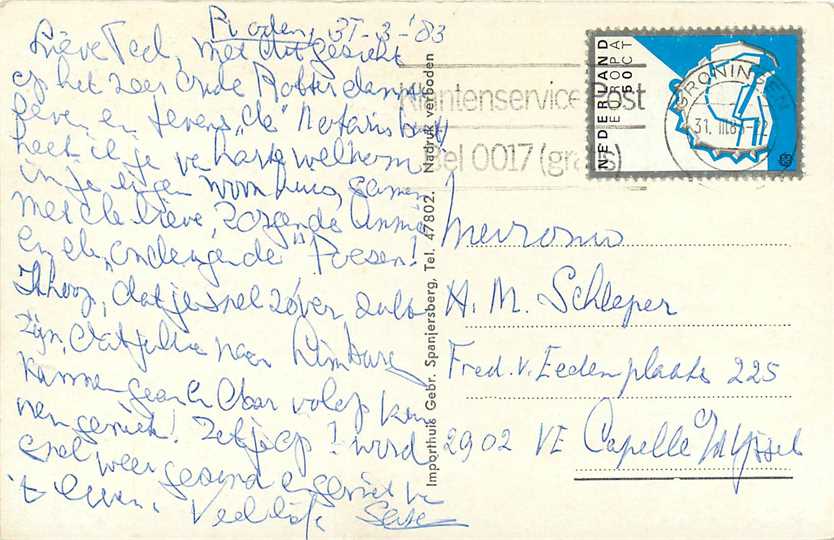 Roden, 31-3-'83
Lieve Ted, met dit gezicht
op het zeer oude Rotterdamse
leven en tevens "de" Notarishuis
heet ik je van harte welkom
in je eigen woonhuis, samen
met de lieve, zorgende Anna
en de "ondeugende" Poesen!
Ik hoop, dat je snel zover zult
zijn, dat jullie naar Limburg
kunnen gaan en daar volop kun-
nen genieten! Zet je op! word
snel weer gezond en geniet van
't leven. Veel liefs,
Importhuis Gebr. Spanjersberg, Tel. 47802. Nadruk verboden
Klantenservice Post
Bel 0017 (gratis)
NEDERLAND
EUROPA
50CT
GRONINGEN
31. III.8
Mevrouw
H. M. Schleper
Fred. v. Eedenplaats 225
2902 VE Capelle a/d IJssel